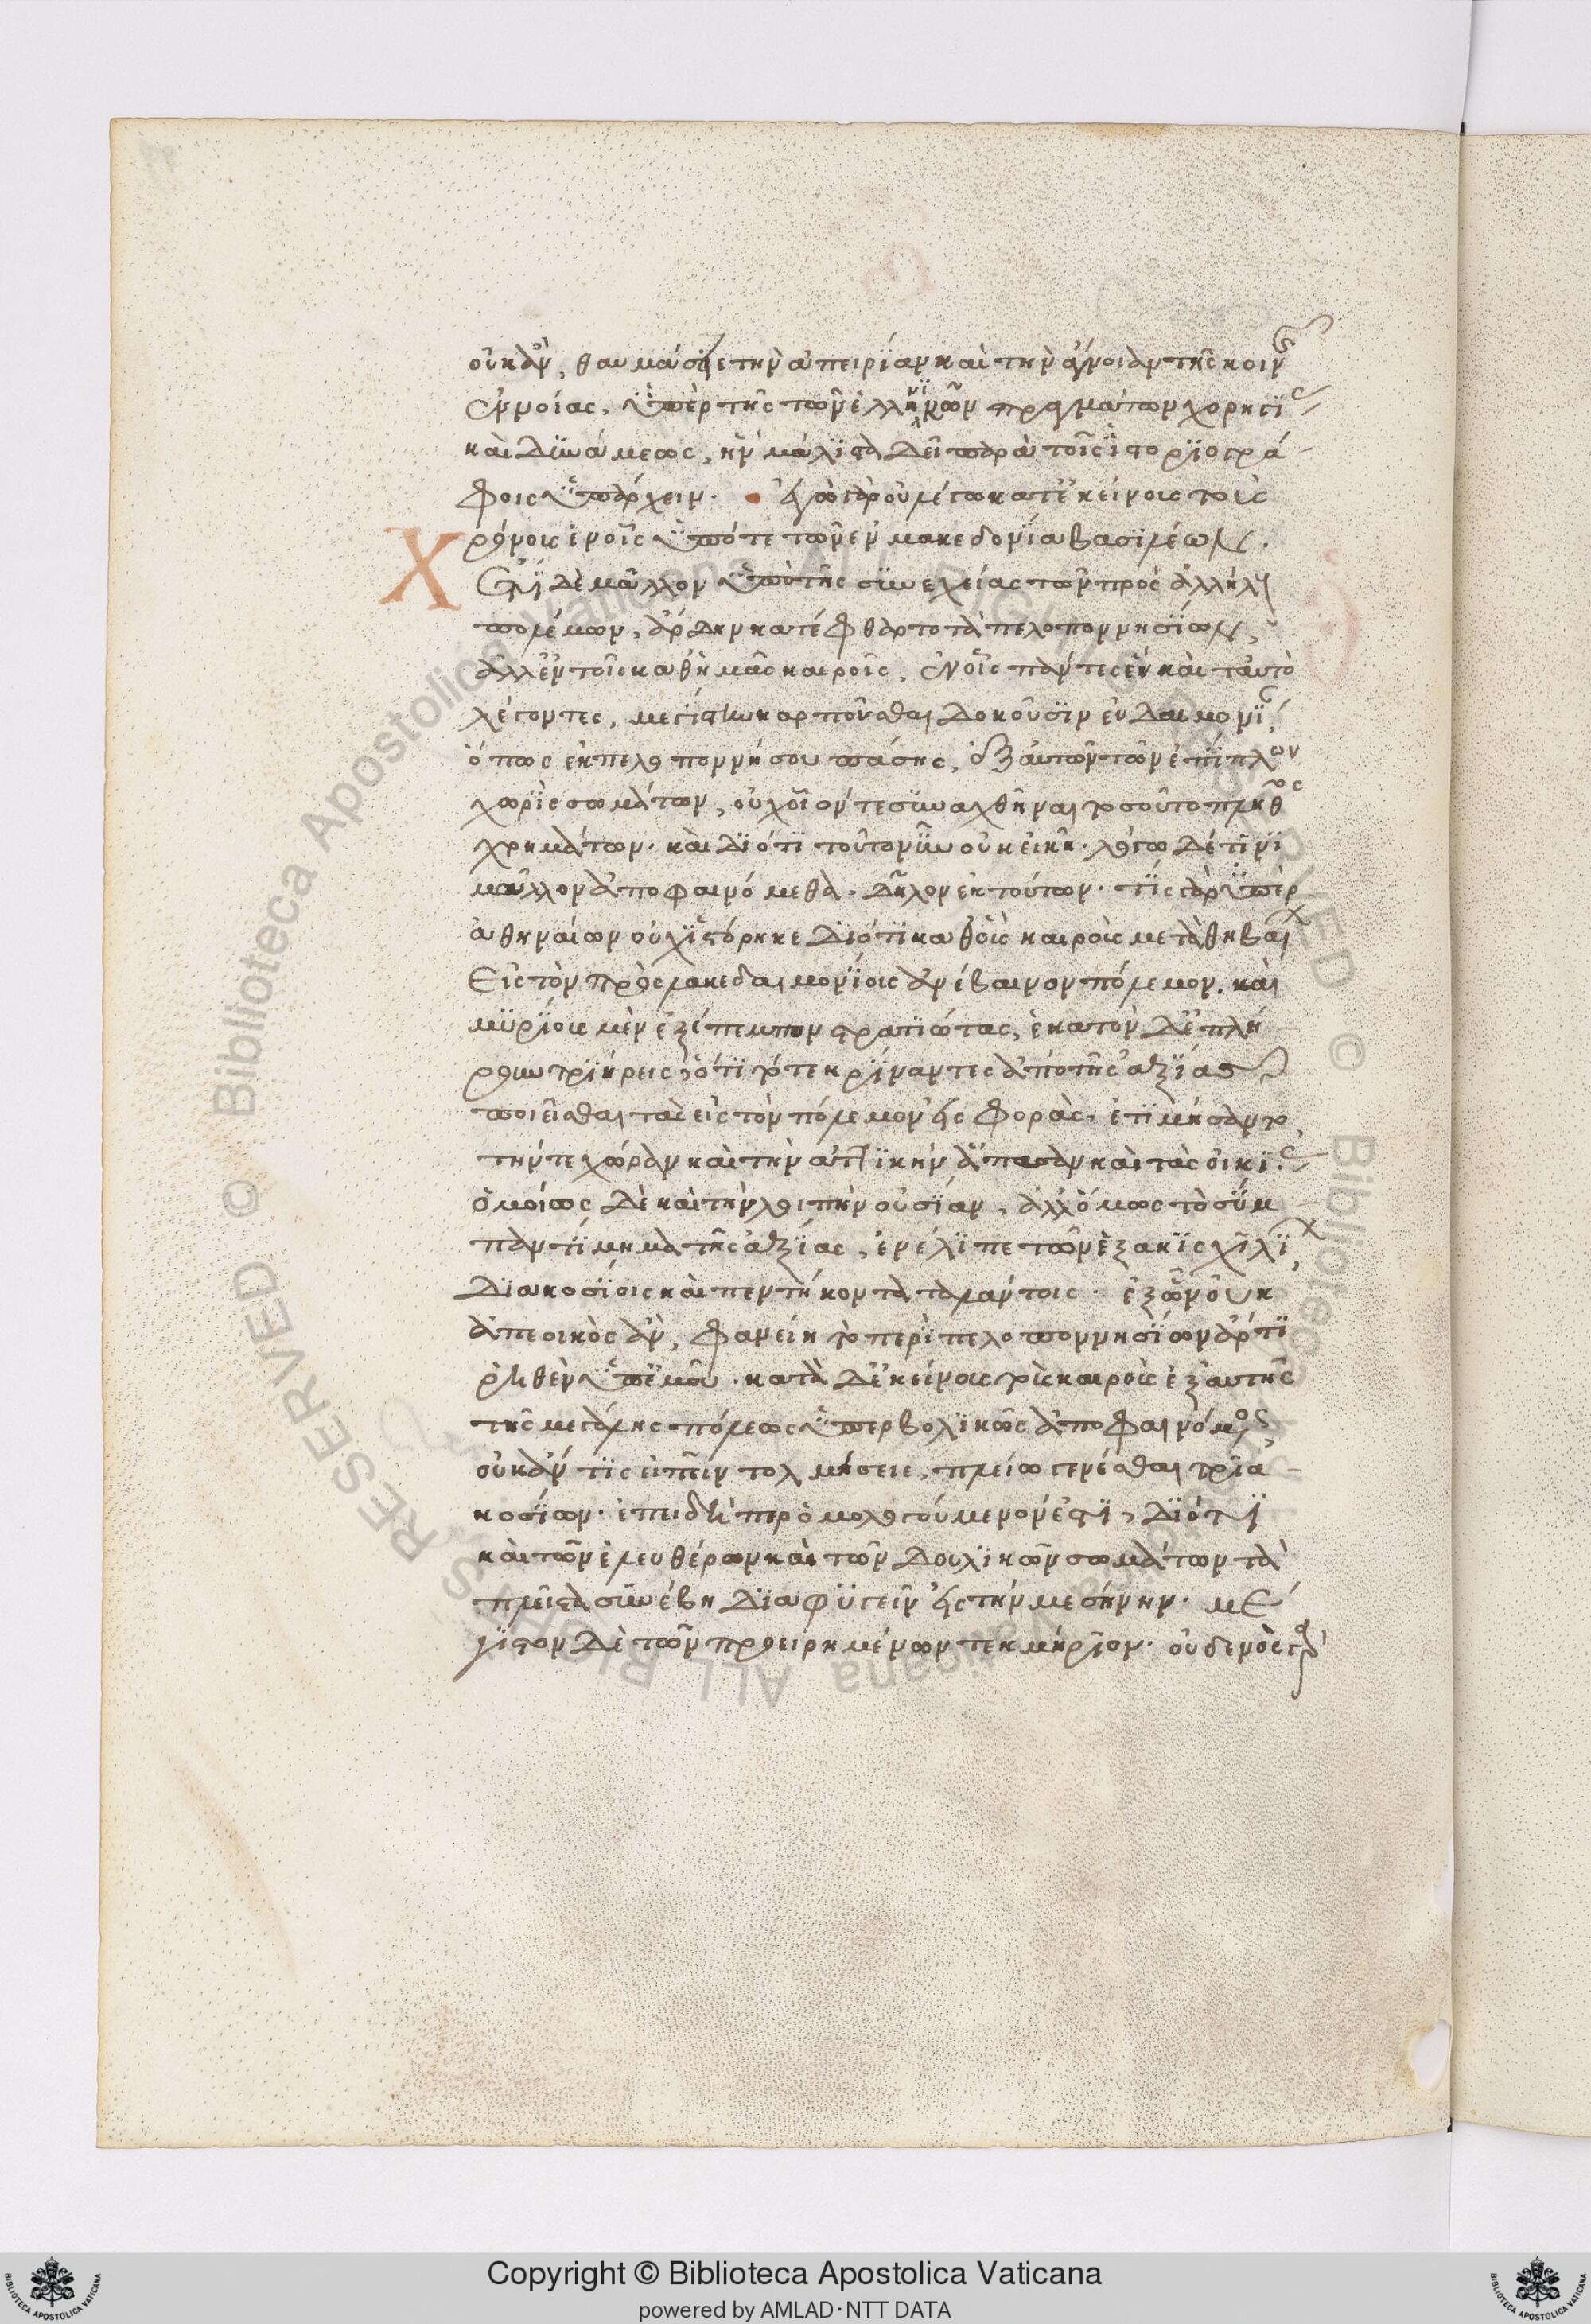 οὐκ ἂν, θαυμάσειε τὴν ἀπειρίαν καὶ τὴν ἄγνοιαν τῆς κοινῆς
ἐννοίας, ὑπὲρ τῆς τῶν ἑλληνικῶν πραγμάτων χορηγίας
καὶ δυνάμεως, ἣν μάλιστα δεῖ παρὰ τοῖς ἱστοριογρά
φοις ὑπάρχειν. ἐγὼ γὰρ οὐ λέγω κατ ἐκείνους τοὺς
Χρόνους ἐν οἷς ὑπό τε τῶν ἐν μακεδονία βασιλέων.
ἔτι δὲ μᾶλλον ὑπὸ τῆς συνεχείας τῶν πρὸς ἀλλήλους
πολέμων, ἄρδην κατέφθαρτο τὰ πελοποννησίων,
ἀλλ ἐν τοῖς καθ ἡμᾶς καιροῖς, ἐν οἷς πάντες ἓν καὶ ταυτὸ
λέγοντες, μεγίστην καρποῦσθαι δοκοῦσιν εὐδαιμονίαν,
ὅπως ἐκ πελοποννήσου πάσης, ἐξ αὐτῶν τῶν ἐπίπλων
χωρὶς σωμάτων, οὐχ οἷόν τε συναχθῆναι τοσοῦτο πλῆθος
χρημάτων. καὶ διότι τοῦτο νῦν οὐκ εἰκῆ. λόγω δέ τινι
μᾶλλον ἀποφαινόμεθα. δῆλον ἐκ τούτων. τίς γὰρ ὑπὲρ
ἀθηναίων οὐχ ἱστόρηκε διότι καθ οὓς καιροὺς μετὰ θηβαίων
εἰς τὸν πρὸς λακεδαιμονίους ἀνέβαινον πόλεμον. καὶ
μυρίους μὲν ἐξέπεμπον στρατιώτας, ἑκατὸν δ ἐπλή
ρουν τριήρεις, ὅτι τότε κρίναντες ἀπὸ τῆς ἀξίας
ποιεῖσθαι τὰς εἰς τὸν πόλεμον ἐσφορὰς, ἐτιμήσαντο
τήν τε χώραν καὶ τὴν ἀττικὴν ἅπασαν καὶ τὰς οἰκίας.
ὁμοίως δὲ καὶ τὴν λοιπὴν οὐσίαν, ἀλλ ὅμως τὸ σύμ
παν τίμημα τῆς ἀξίας, ἐνέλιπε τῶν ἑξακισχιλίων,
διακοσίοις καὶ πεντήκοντα ταλάντοις. ἐξ ὧν οὐκ
ἀπεοικὸς ἂν, φανείη τὸ περὶ πελοποννησίων ἄρτι
ῥηθὲν ὑπ ἐμοῦ. κατὰ δ ἐκείνους τοὺς καιροὺς ἐξ αὐτῆς
τῆς μεγάλης πόλεως ὑπερβολικῶς ἀποφαινόμενος
οὐκ ἄν τις εἰπεῖν τολμήσειε, πλείω γενέσθαι τρια
κοσίων. ἐπειδήπερ ὁμολογούμενόν ἐστι, διότι
καὶ τῶν ἐλευθέρων καὶ τῶν δουλικῶν σωμάτων τὰ
πλεῖστα συνέβη διαφυγεῖν ἐς τὴν μεσήνην. μέ
γιστον δὲ τῶν προειρημένων τεκμήριον. οὐδενὸς γὰρ